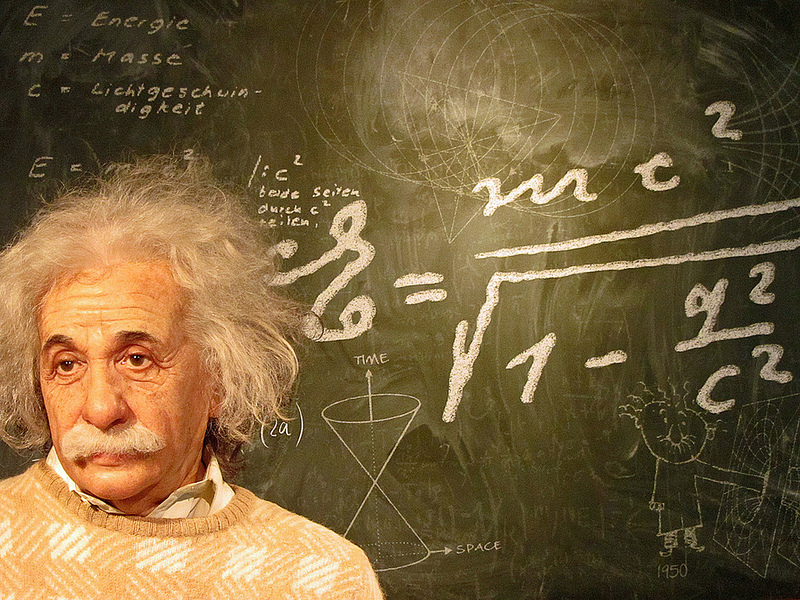 E = Energie
m = Masse
c = Lichtgeschwin-
digkeit
E = m 2
/: c²
beide Seiten
durch c²
teilen.
E = mc² / √1 - q²/c²
TIME
(2a)
SPACE
1950